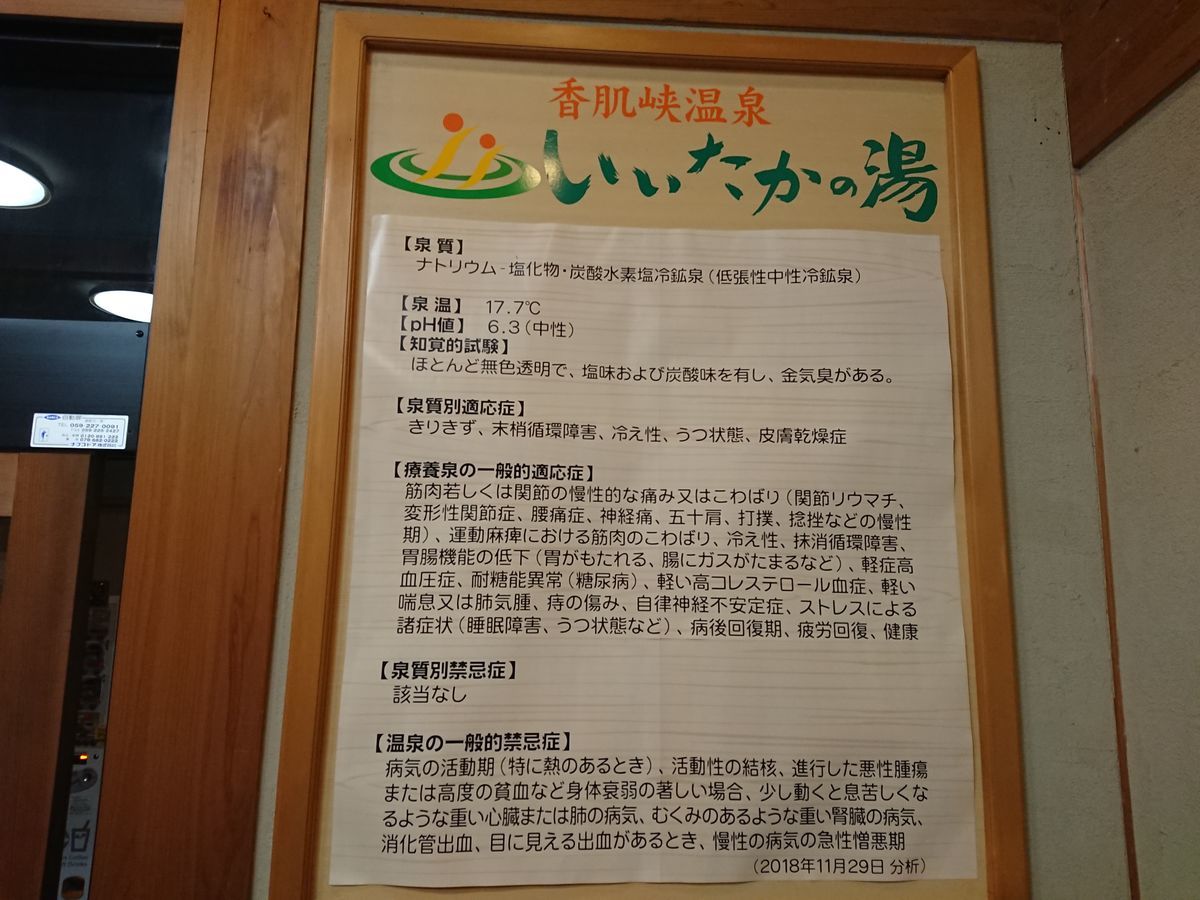 香肌峡温泉
いいたかの湯
【泉 質】
ナトリウム - 塩化物・炭酸水素塩冷鉱泉（低張性中性冷鉱泉）
【泉 温】 17.7℃
【pH値】 6.3（中性）
【知覚的試験】
ほとんど無色透明で、塩味および炭酸味を有し、金気臭がある。
【泉質別適応症】
きりきず、末梢循環障害、冷え性、うつ状態、皮膚乾燥症
【療養泉の一般的適応症】
筋肉若しくは関節の慢性的な痛み又はこわばり（関節リウマチ、
変形性関節症、腰痛症、神経痛、五十肩、打撲、捻挫などの慢性
期）、運動麻痺における筋肉のこわばり、冷え性、抹消循環障害、
胃腸機能の低下（胃がもたれる、腸にガスがたまるなど）、軽症高
血圧症、耐糖能異常（糖尿病）、軽い高コレステロール血症、軽い
喘息又は肺気腫、痔の傷み、自律神経不安定症、ストレスによる
諸症状（睡眠障害、うつ状態など）、病後回復期、疲労回復、健康
【泉質別禁忌症】
該当なし
【温泉の一般的禁忌症】
病気の活動期（特に熱のあるとき）、活動性の結核、進行した悪性腫瘍
または高度の貧血など身体衰弱の著しい場合、少し動くと息苦しくな
るような重い心臓または肺の病気、むくみのあるような重い腎臓の病気、
消化管出血、目に見える出血があるとき、慢性の病気の急性憎悪期
（2018年11月29日 分析）
自動扉
TEL 059-227-0091